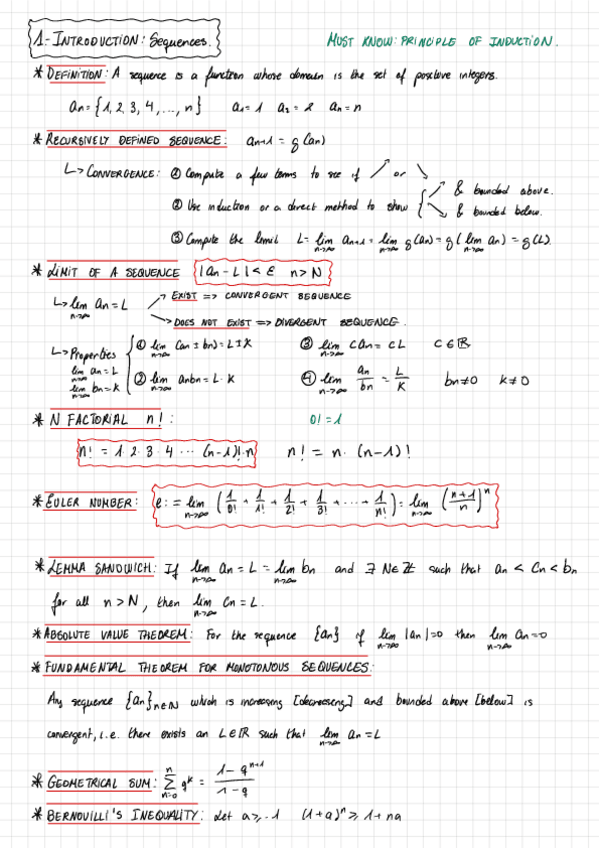 1-INTRODUCTION: Sequences. MUST KNOW: PRINCIPLE OF INDUCTION.
* DEFINITION: A sequence is a function whose domain is the set of positive integers.
an = {1, 2, 3, 4, ..., n} a1 = 1 a2 = 2 an = n
* RECURSIVELY DEFINED SEQUENCE: an+1 = g(an)
↳ CONVERGENCE: ① Compute a few terms to see if ↗ or ↘
② Use induction or a direct method to show { ↗ & bounded above.
↘ & bounded below.
③ Compute the limit L = lim n→∞ an+1 = lim n→∞ g(an) = g(lim n→∞ an) = g(L).
* LIMIT OF A SEQUENCE |an - L| < ε n > N
↳ lim n→∞ an = L ↗ EXIST => CONVERGENT SEQUENCE
↘ DOES NOT EXIST => DIVERGENT SEQUENCE.
↳ Properties { ① lim n→∞ (an ± bn) = L ± K ③ lim n→∞ can = cL c ∈ ℝ
lim n→∞ an = L
lim n→∞ bn = K ② lim n→∞ anbn = L · K ④ lim n→∞ an/bn = L/K bn ≠ 0 K ≠ 0
* N FACTORIAL n! : 0! = 1
n! = 1·2·3·4 ··· (n-1)!·n n! = n · (n-1)!
* EULER NUMBER: e := lim n→∞ (1/0! + 1/1! + 1/2! + 1/3! + ... + 1/n!) = lim n→∞ ((n+1)/n)^n
* LEMMA SANDWICH: If lim n→∞ an = L = lim n→∞ bn and ∃ N ∈ ℤ such that an < Cn < bn
for all n > N, then lim n→∞ Cn = L.
* ABSOLUTE VALUE THEOREM: For the sequence {an} if lim n→∞ |an| = 0 then lim n→∞ an = 0
* FUNDAMENTAL THEOREM FOR MONOTONOUS SEQUENCES:
Any sequence {an}n∈ℕ which is increasing [decreasing] and bounded above [below] is
convergent, i.e. there exists an L ∈ ℝ such that lim n→∞ an = L
* GEOMETRICAL SUM: n Σ n=0 q^k = (1 - q^(n+1))/(1 - q)
* BERNOUILLI'S INEQUALITY: Let a ≥ -1 (1+a)^n ≥ 1 + na